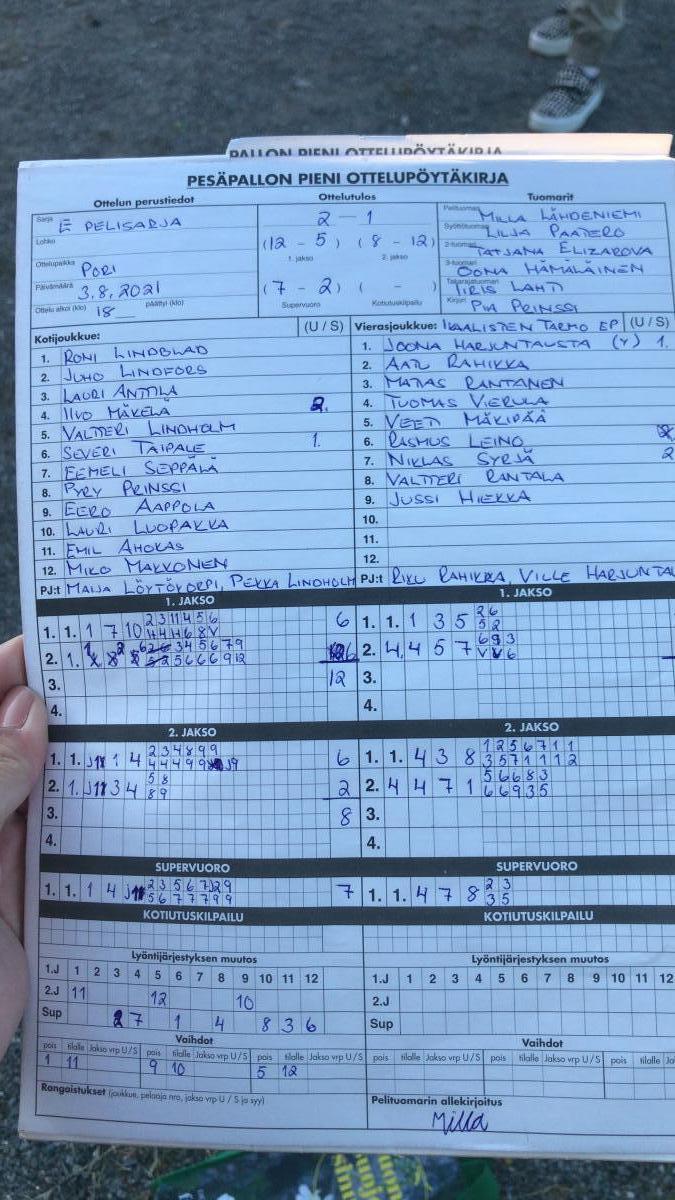 PESÄPALLON PIENI OTTELUPÖYTÄKIRJA
Ottelun perustiedot
Sarja E PELISARJA
Lohko
Ottelupaikka PORI
Päivämäärä 3.8.2021
Ottelu alkoi (klo) 18 päättyi (klo)
Ottelutulos
2 - 1
(12 - 5) (8 - 12)
1. jakso 2. jakso
(7 - 2) ( - )
Supervuoro Kotiutuskilpailu
Tuomarit
Pelituomari MILLA LÄHDENIEMI
Syöttötuomari LILJA PAATERO
2-tuomari TATJANA ELIZAROVA
3-tuomari OONA HÄMÄLÄINEN
Takarajatuomari IIRIS LAHTI
Kirjuri PIA PRINSSI
Kotijoukkue: (U / S)
1. RONI LINDBLAD
2. JUHO LINDFORS
3. LAURI ANTTILA
4. ILVO MÄKELÄ 2.
5. VALTTERI LINDHOLM
6. SEVERI TAIPALE 1.
7. EEMELI SEPPÄLÄ
8. PYRY PRINSSI
9. EERO AAPPOLA
10. LAURI LUOPAKKA
11. EMIL AHOKAS
12. MIKO MAKKONEN
PJ:t MAIJA LÖYTÖKORPI, PEKKA LINDHOLM
Vierasjoukkue: IKAALISTEN TARMO EP (U / S)
1. JOONA HARJUNTAUSTA (Y) 1.
2. AATU RAHIKKA
3. MATIAS RANTANEN
4. TUOMAS VIERULA
5. VEETI MÄKIPÄÄ
6. RASMUS LEINO
7. NIKLAS SYRJÄ 2
8. VALTTERI RANTALA
9. JUSSI HIEKKA
10.
11.
12.
PJ:t RIKU RAHIKKA, VILLE HARJUNTAU
1. JAKSO
1. 1. 1 7 10 6
2. 1. 6
3. 12
4.
1. JAKSO
1. 1. 1 3 5 26 52
2. 4 4 5 7
3.
4.
2. JAKSO
1. 1. 1 4 234899 6
2. 1. 3 4 58 89 2
3. 8
4.
2. JAKSO
1. 1. 4 3 8 1256711 3571112
2. 4 4 7 1 56683 66935
3.
4.
SUPERVUORO
1. 1. 1 4 7
SUPERVUORO
1. 1. 4 7 8 23 35
KOTIUTUSKILPAILU
KOTIUTUSKILPAILU
Lyöntijärjestyksen muutos
1.J 1 2 3 4 5 6 7 8 9 10 11 12
2.J 11 12 10
Sup 2 7 1 4 8 3 6
Lyöntijärjestyksen muutos
1.J 1 2 3 4 5 6 7 8 9 10 11 12
2.J
Sup
Vaihdot
pois tilalle Jakso vrp U / S pois tilalle Jakso vrp U / S pois tilalle Jakso vrp U / S
1 11 9 10 5 12
Vaihdot
pois tilalle Jakso vrp U / S pois tilalle Jakso vrp U / S pois tilalle
Rangaistukset (joukkue, pelaaja nro, jakso vrp U / S ja syy)
Pelituomarin allekirjoitus
Milla